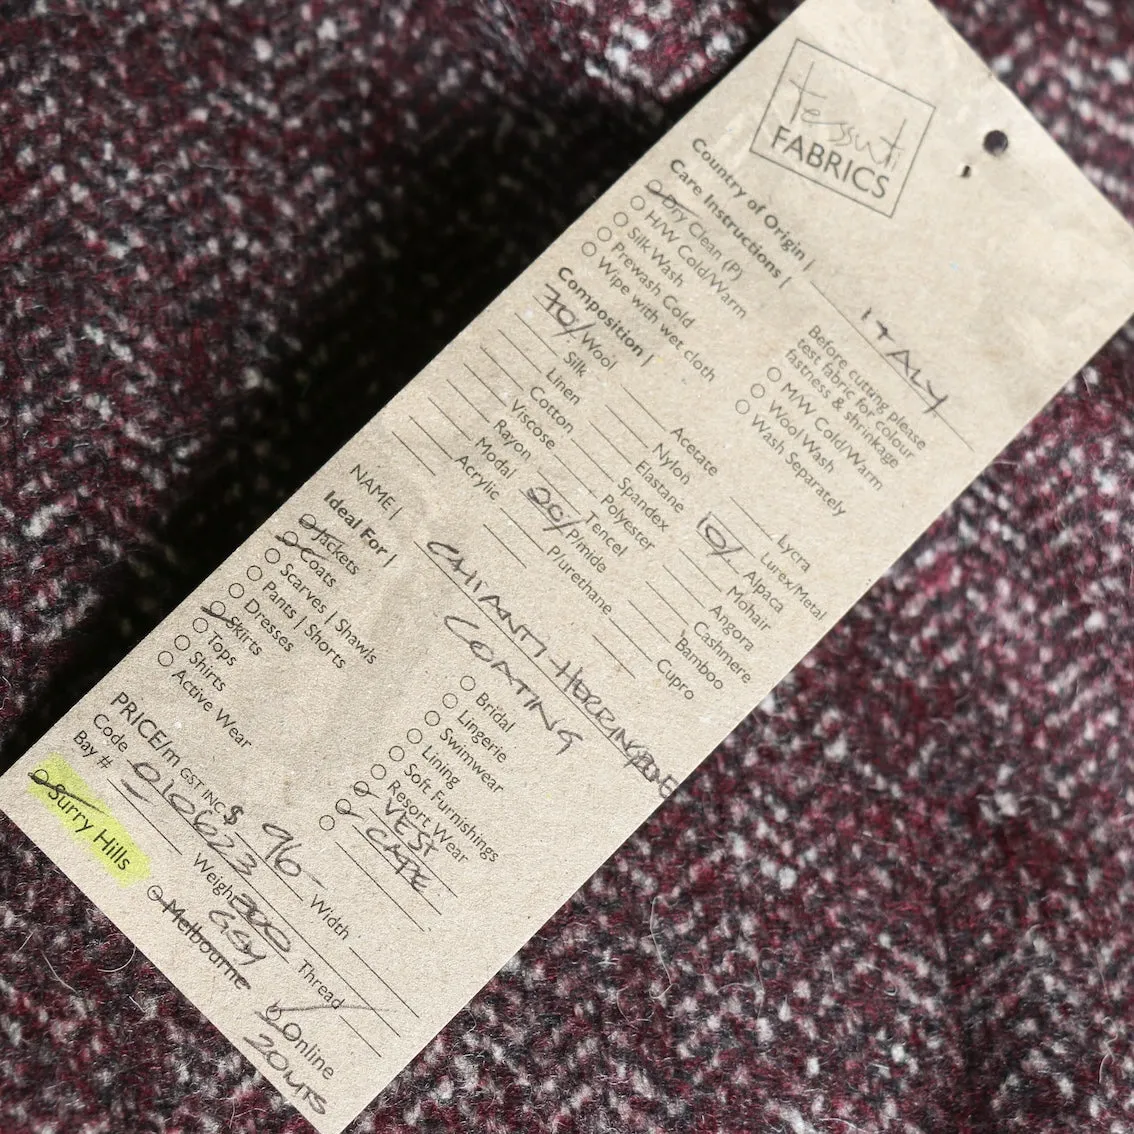 tessuti
FABRICS
Country of Origin | ITALY
Care Instructions |
Dry Clean (P)
H/W Cold/Warm
Silk Wash
Prewash Cold
Wipe with wet cloth
Before cutting please
test fabric for colour
fastness & shrinkage
M/W Cold/Warm
Wool Wash
Wash Separately
Composition |
70/ Wool
Silk
Linen
Cotton
Viscose
Rayon
Modal
Acrylic
Acetate
Nylon
Elastane
Spandex
Polyester
Tencel
20/ P/mide
P/urethane
Lycra
Lurex/Metal
10/ Alpaca
Mohair
Angora
Cashmere
Bamboo
Cupro
NAME | CHIANTI HERRINGBONE
COATING
Ideal For |
Jackets
Coats
Scarves | Shawls
Pants | Shorts
Dresses
Skirts
Tops
Shirts
Active Wear
Bridal
Lingerie
Swimwear
Lining
Soft Furnishings
Resort Wear
VEST
CAPE
PRICE/m GST INC $ 96- Width
Code 010623 Weight 300 Thread
GSM
Bay #
Surry Hills Melbourne Online
20MTS